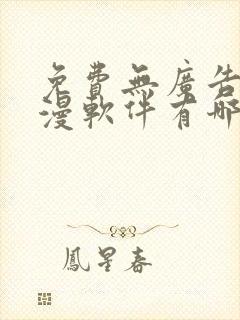 免費無廣告
漫軟件有哪
鳳星春